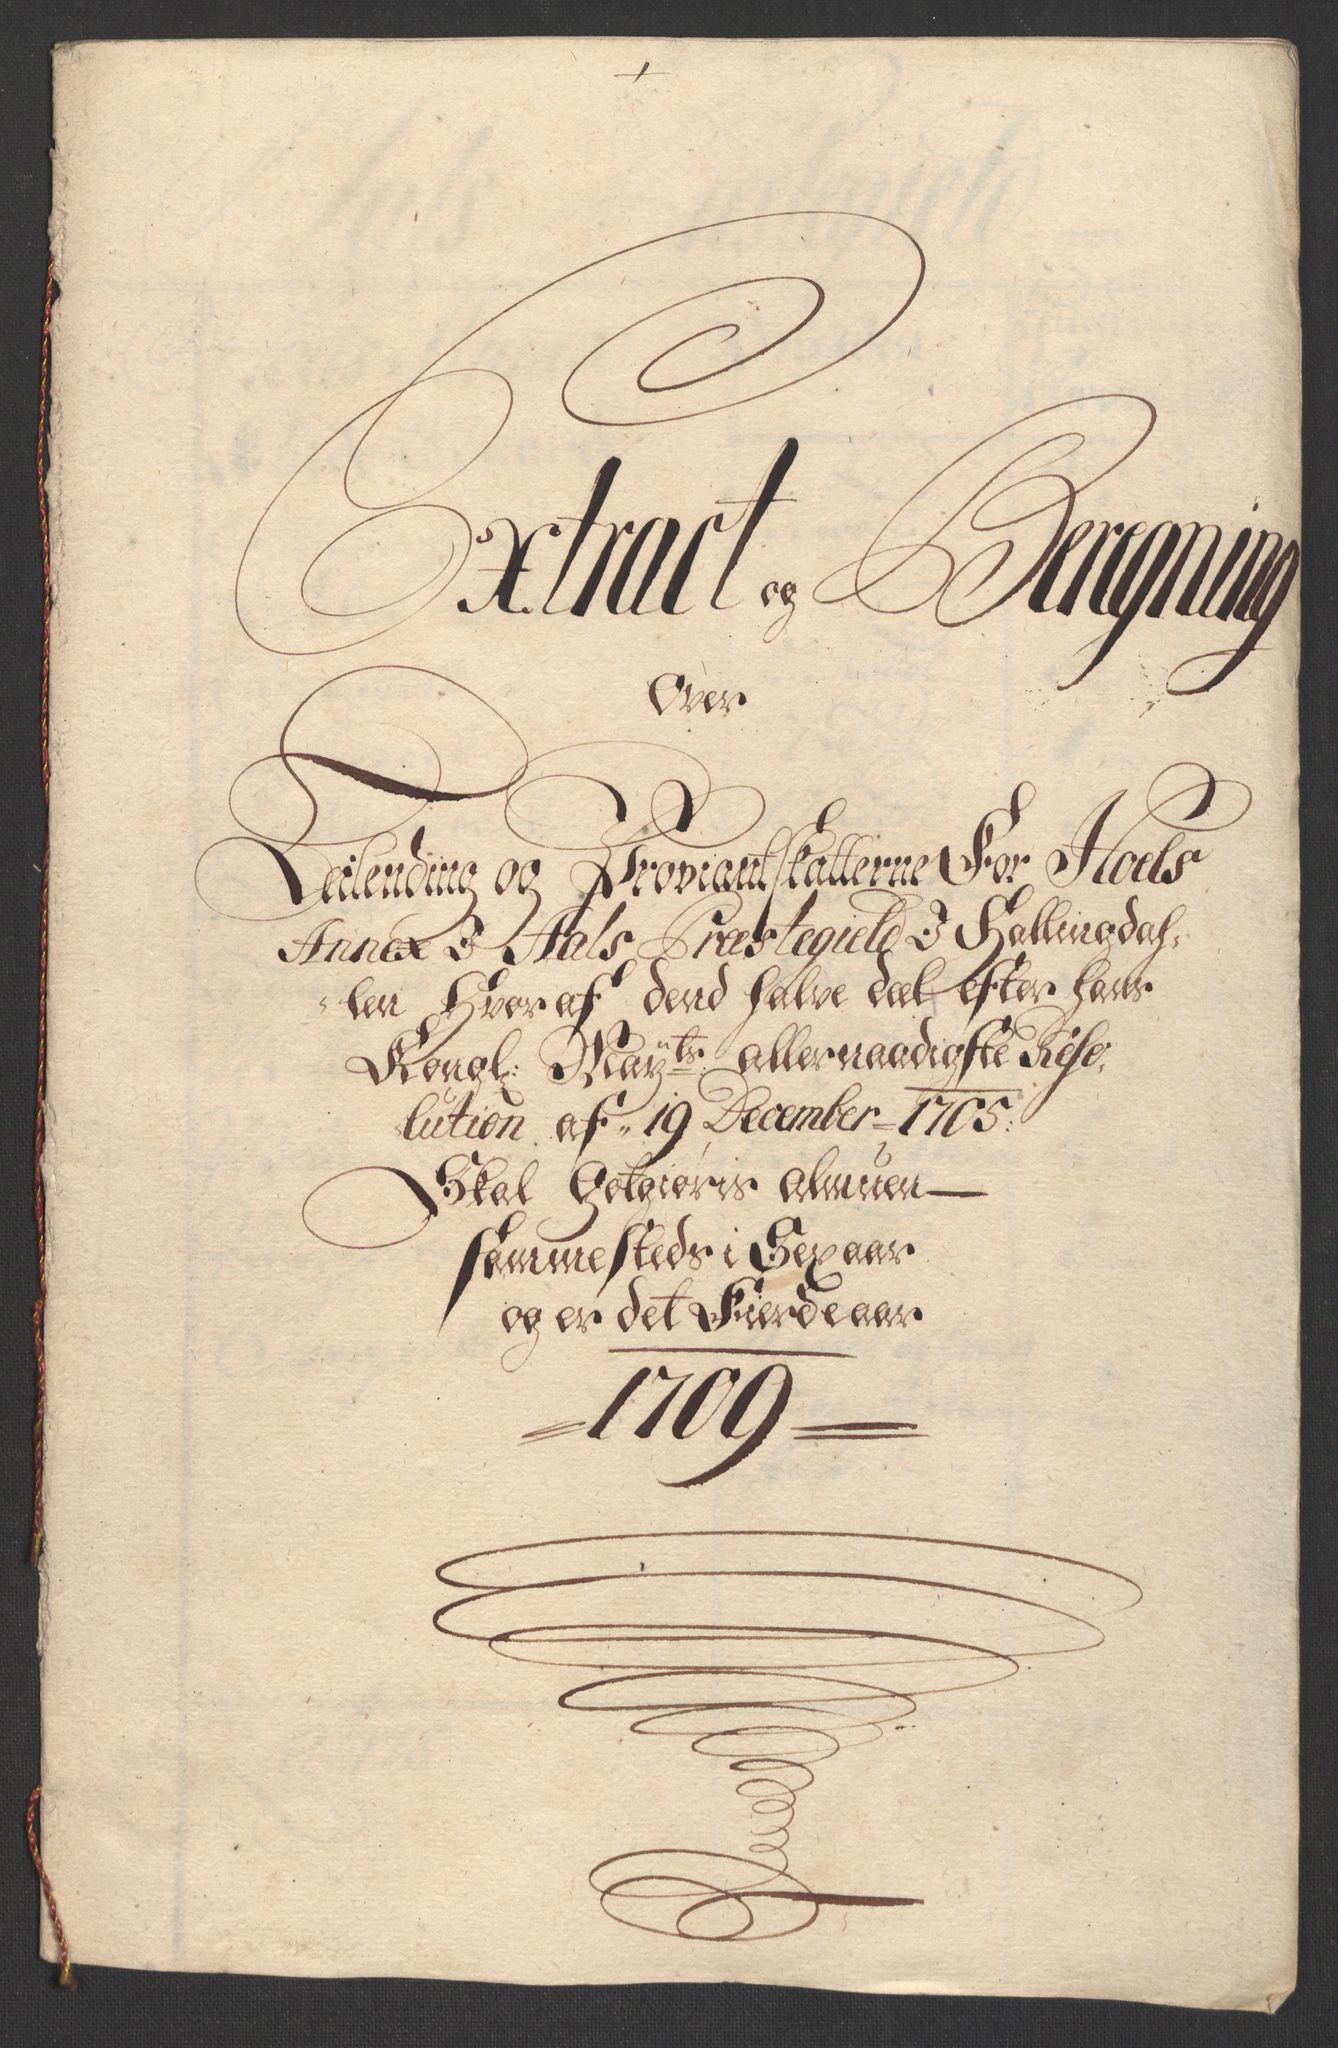 Extract og Beregning
Over
Leilending og Proviantskatterne For Hoels
Annex I Aals Præstegield I Hallingdah¬
¬len Hvor af dend halve deel efter hans
Kongl: Mayts: allernaadigste Reso¬
lution af 19 December 1705:
Skal Gotgiøris Almuen
sammesteds i Sex aar
og er det Fierde aar
1709